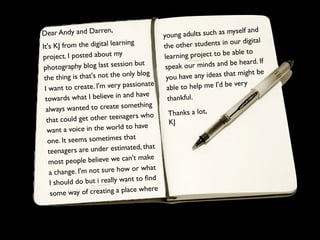 Dear Andy and Darren,
It's KJ from the digital learning
project. I posted about my
photography blog last session but
the thing is that's not the only blog
I want to create. I'm very passionate
towards what I believe in and have
always wanted to create something
that could get other teenagers who
want a voice in the world to have
one. It seems sometimes that
teenagers are under estimated, that
most people believe we can't make
a change. I'm not sure how or what
I should do but i really want to find
some way of creating a place where
young adults such as myself and
the other students in our digital
learning project to be able to
speak our minds and be heard. If
you have any ideas that might be
able to help me I'd be very
thankful.
Thanks a lot,
KJ